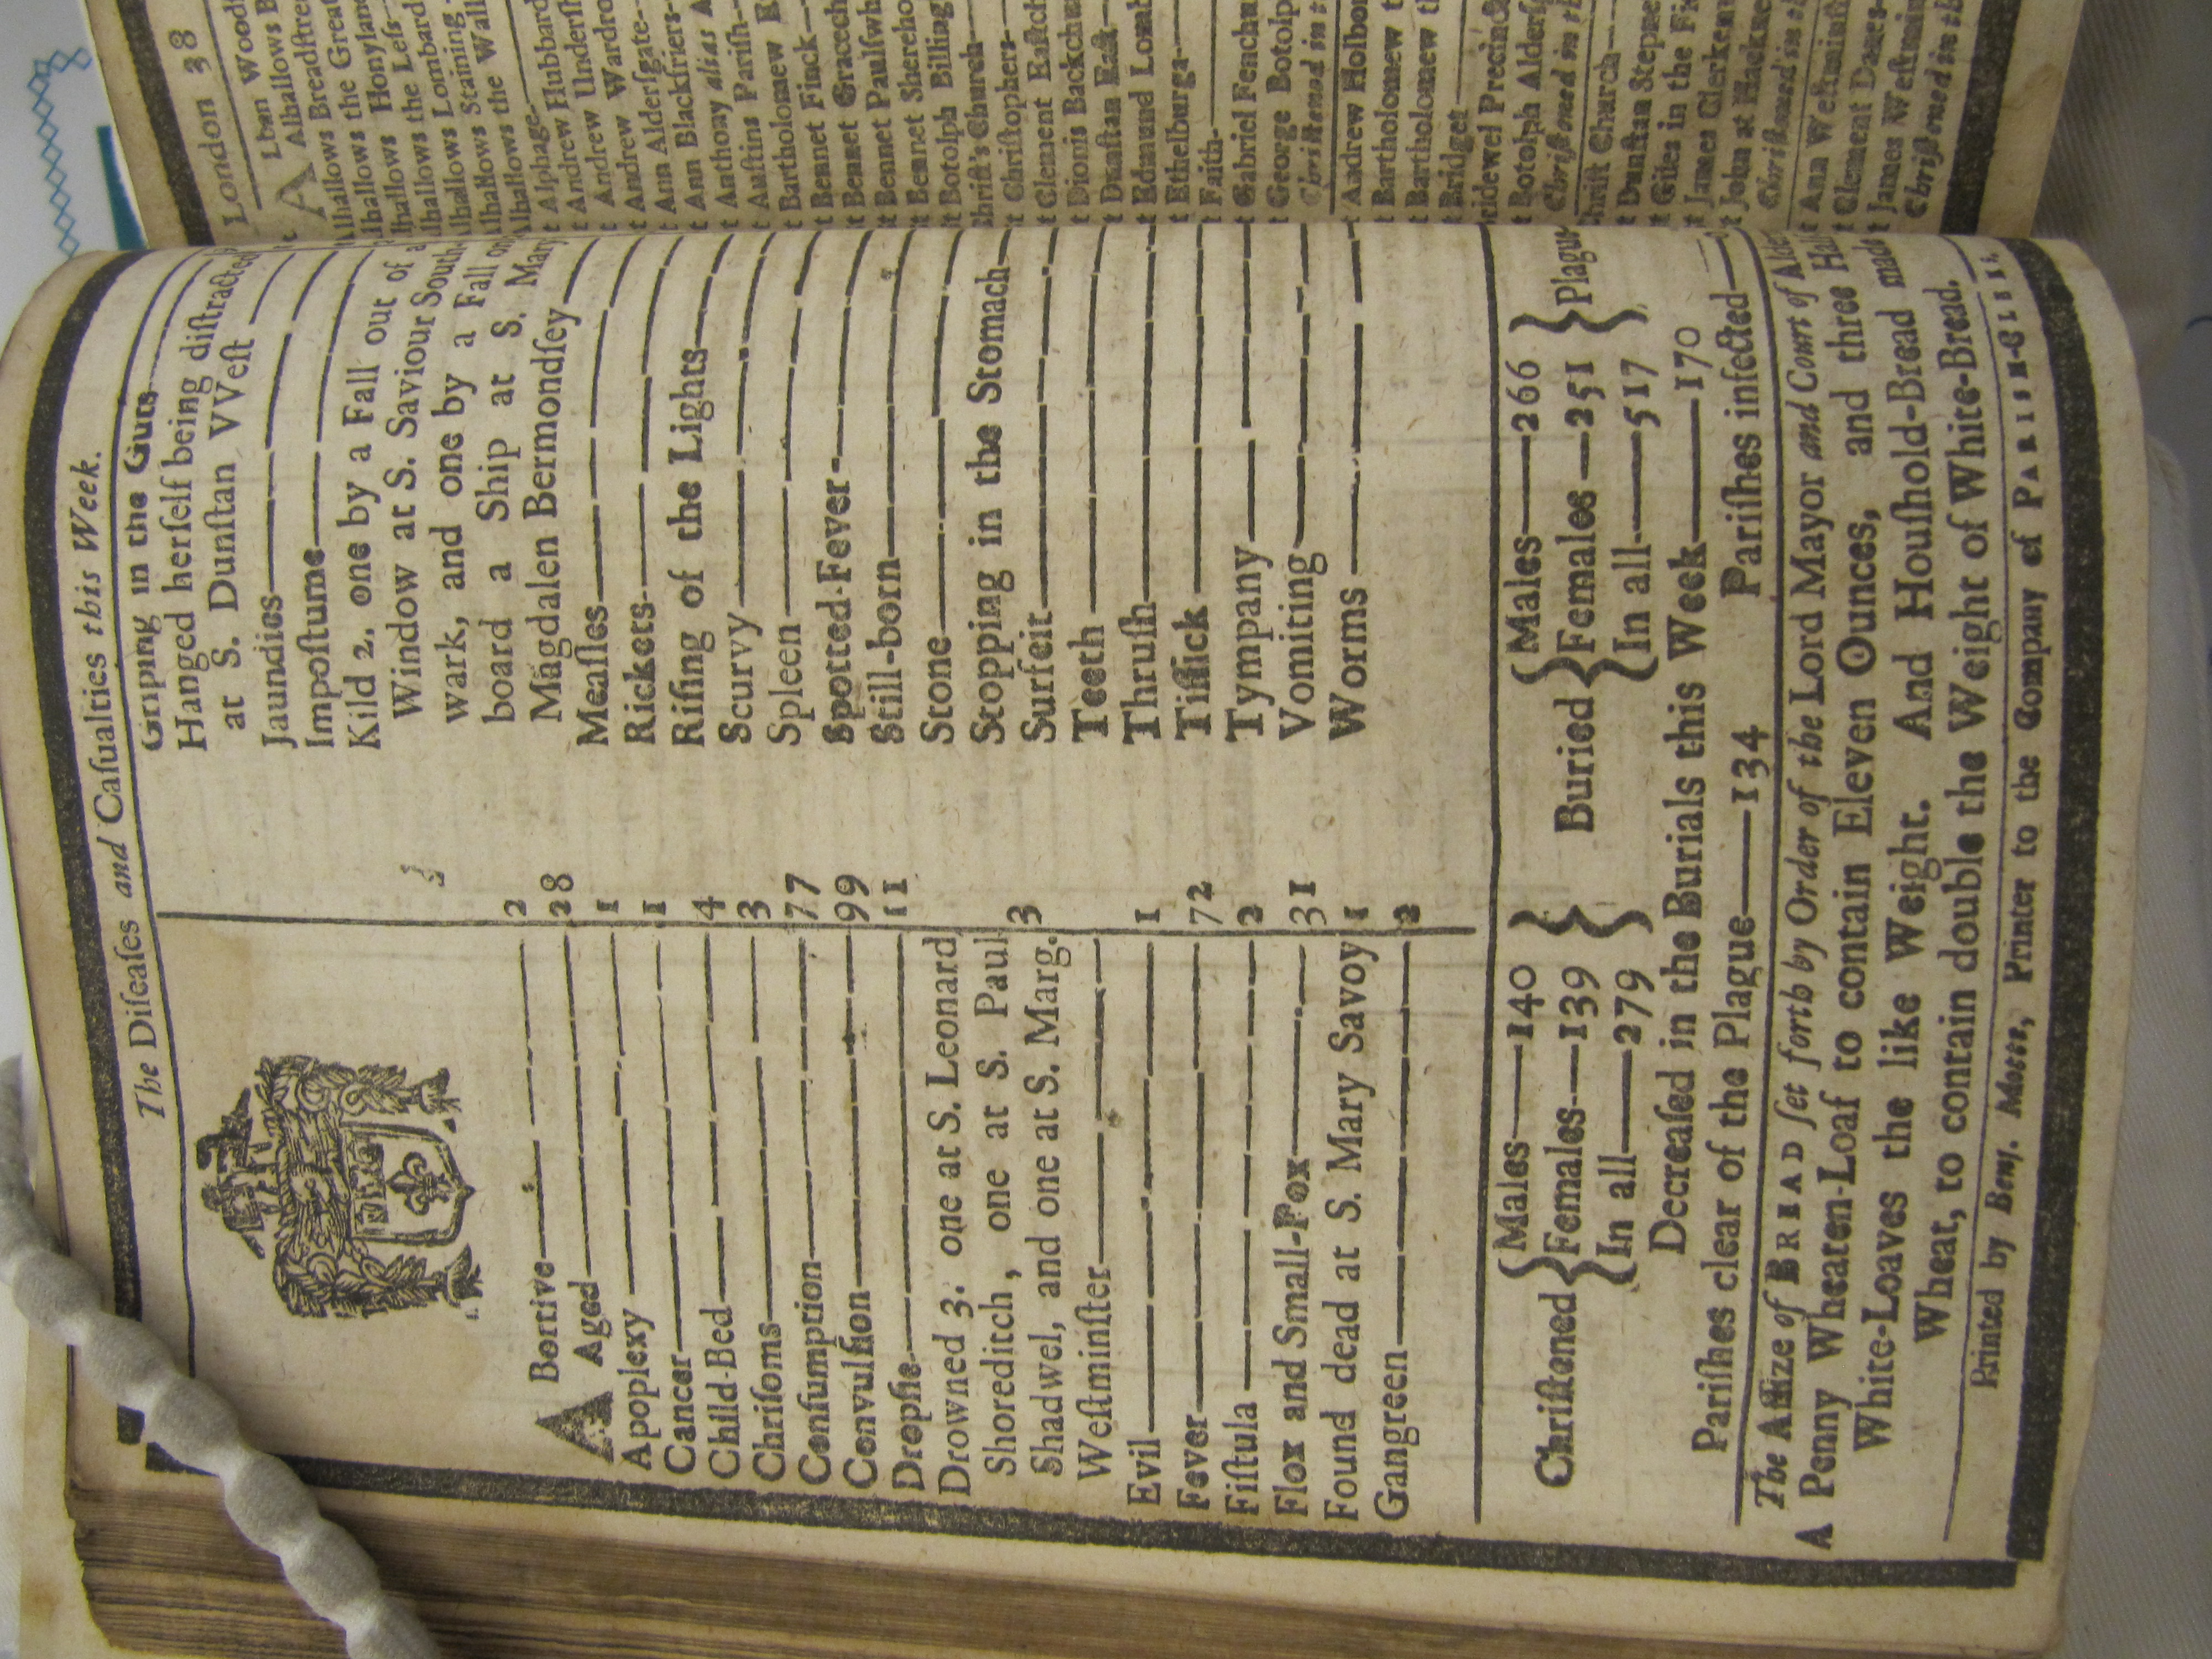 The Diſeaſes and Caſualties this Week.
A Bortive 2
Aged 28
Apoplexy 1
Cancer 1
Child-Bed 4
Chriſoms 3
Conſumption 77
Convulſion 99
Dropſie 11
Drowned 3. one at S. Leonard
Shoreditch, one at S. Paul
Shadwel, and one at S. Marg. 3
Weſtminſter
Evil 1
Fever 72
Fiſtula 2
Flox and Small-Pox 31
Found dead at S. Mary Savoy 1
Gangreen 2
Griping in the Guts
Hanged herſelf being diſtracted
at S. Dunſtan VVeſt
Jaundies
Impoſtume
Kild 2. one by a Fall out of a
Window at S. Saviour South-
wark, and one by a Fall on
board a Ship at S. Mary
Magdalen Bermondſey
Meaſles
Rickets
Riſing of the Lights
Scurvy
Spleen
Spotted-Fever
Still-born
Stone
Stopping in the Stomach
Surfeit
Teeth
Thruſh
Tiſſick
Tympany
Vomiting
Worms
Chriſtened { Males 140 Females 139 In all 279 }
Buried { Males 266 Females 251 In all 517 } Plague
Decreaſed in the Burials this Week 170
Pariſhes clear of the Plague 134 Pariſhes infected
The Aſſize of BREAD ſet forth by Order of the Lord Mayor and Court of Alde
A Penny Wheaten-Loaf to contain Eleven Ounces, and three Half
White-Loaves the like Weight. And Houſhold-Bread made
Wheat, to contain double the Weight of White-Bread.
Printed by Benj. Motte, Printer to the Company of PARISH-CLERKS.
London 38
A Lban Wood
Alhallows B
Alhallows Breadſtree
Alhallows the Great
Alhallows Honylane
Alhallows the Leſs
Alhallows Lombard
Alhallows Staining
Alhallows the Wall
t Alphage
t Andrew Hubbard
t Andrew Underſh
t Andrew Wardro
t Ann Alderſgate
t Ann Blackfriers
t Anthony alias A
t Auſtins Pariſh
t Bartholomew E
t Bennet Finck
t Bennet Gracech
t Bennet Paulſwh
t Bennet Sherehog
t Botolph Billing
Chriſt's Church
t Chriſtophers
t Clement Eaſtch
t Dionis Backchu
t Dunſtan Eaſt
t Edmund Lomb
t Ethelburga
t Faith
t Gabriel Fenchu
t George Botolp
Chriſtened in t
t Andrew Holbor
t Bartholomew t
t Bartholomew th
t Bridget
ridewel Precinct
t Botolph Alderſg
Chriſtened in th
hriſt Church
t Dunſtan Stepne
t Giles in the Fie
t James Clerken
t John at Hackne
Chriſtened in th
t Ann Weſtminſt
t Clement Danes
t James Weſtmin
Chriſtened in th